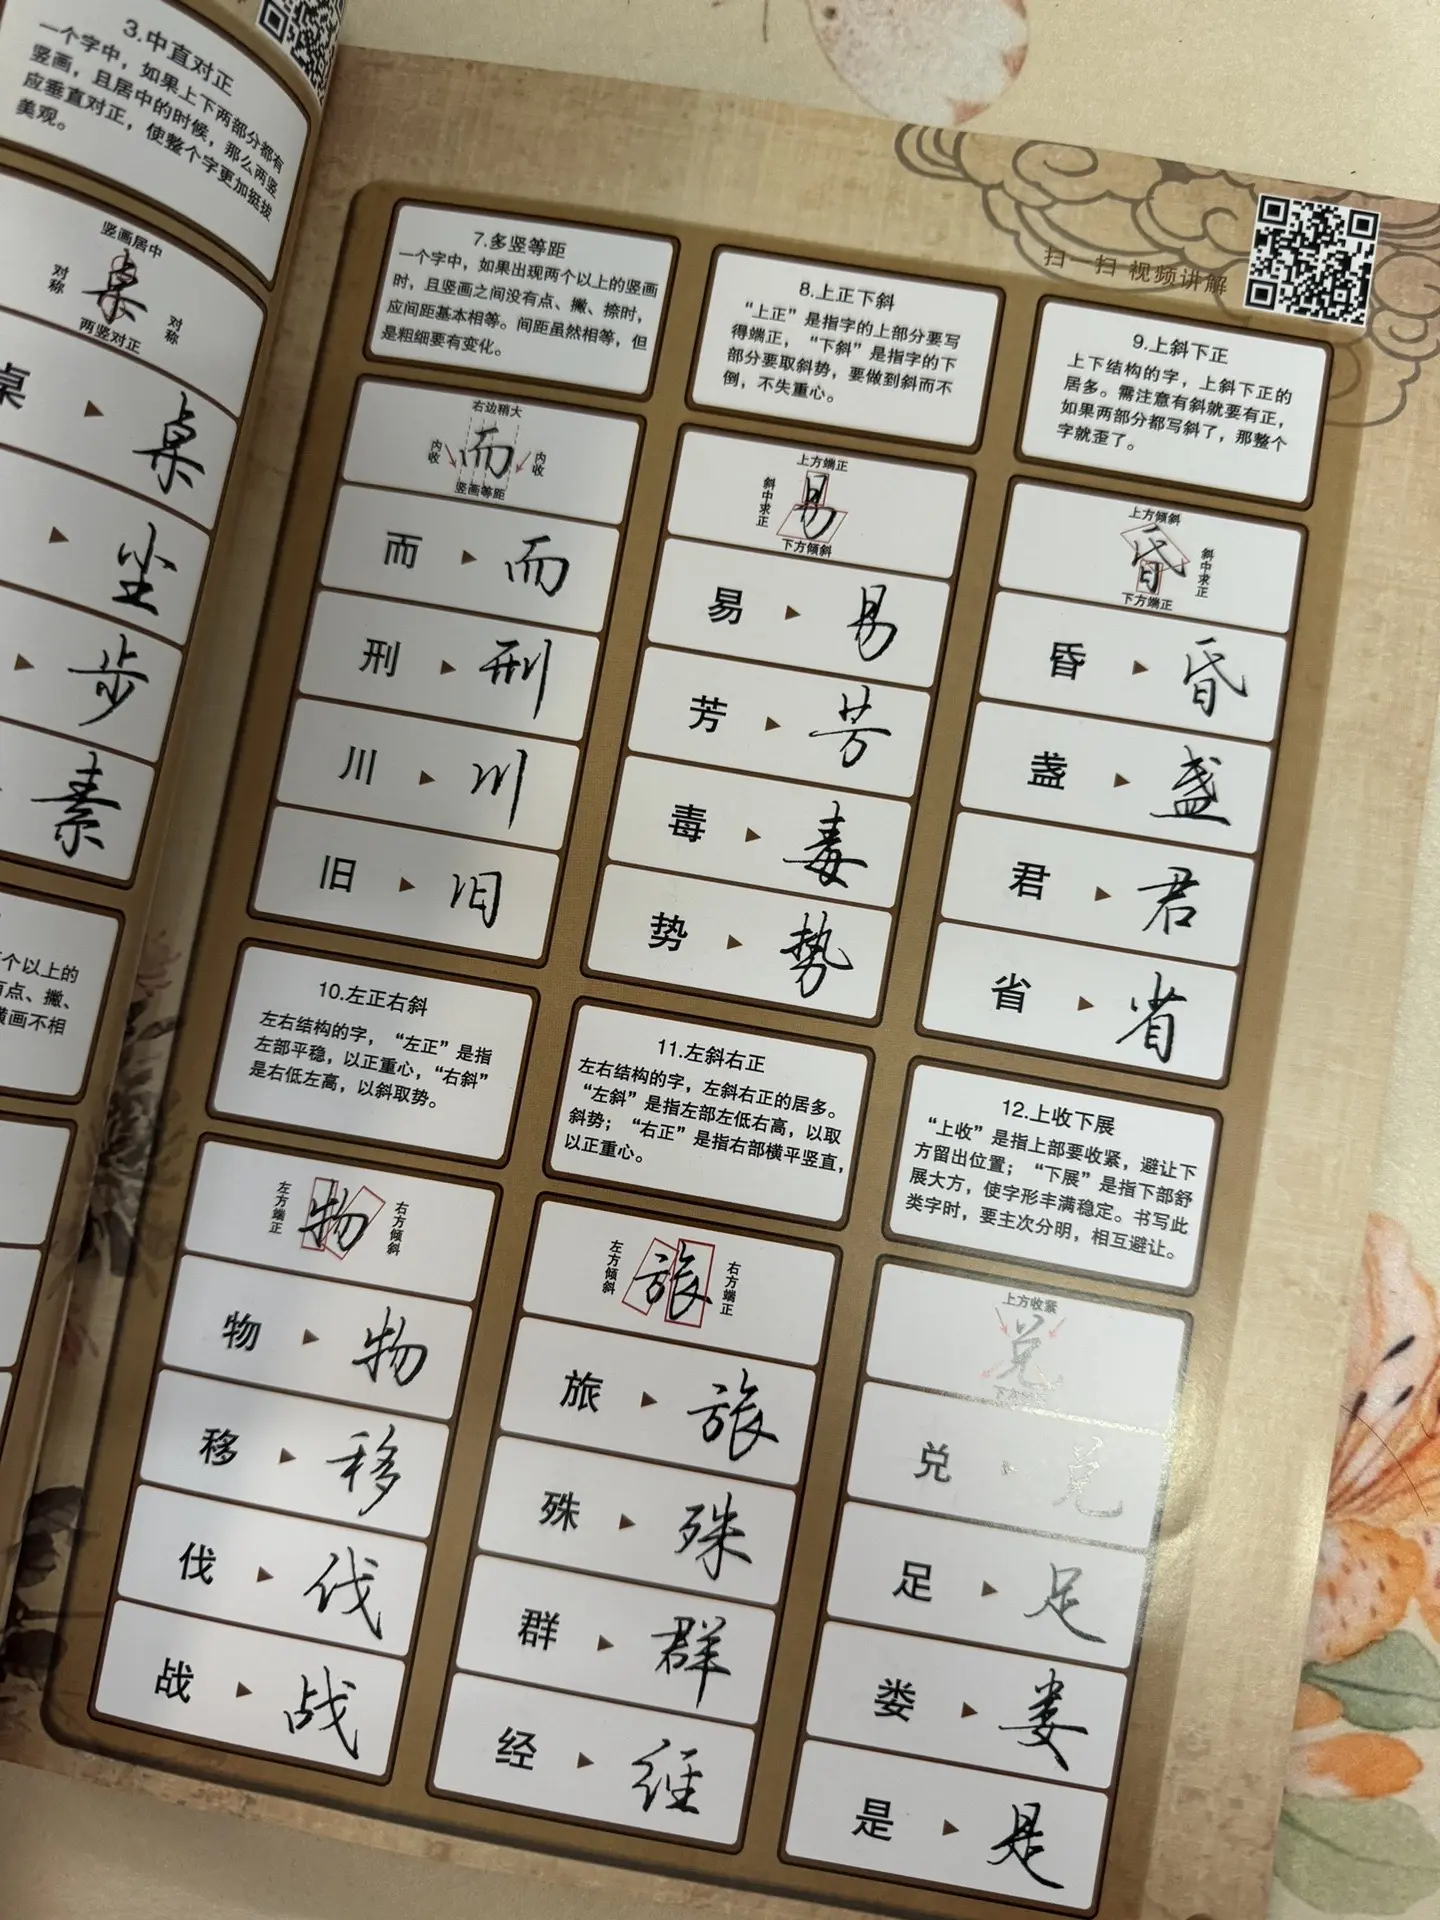 3.中直对正
一个字中，如果上下两部分都有
竖画，且居中的时候，那么两竖
应垂直对正，使整个字更加挺拔
美观。
竖画居中
对称
桌
对称
两竖对正
桌 桌
尘
步
素
个以上的
点、撇、
横画不相
扫一扫 视频讲解
7.多竖等距
一个字中，如果出现两个以上的竖画
时，且竖画之间没有点、撇、捺时，
应间距基本相等。间距虽然相等，但
是粗细要有变化。
右边稍大
内收
而
内收
竖画等距
而 而
刑 刑
川 川
旧 旧
8.上正下斜
“上正”是指字的上部分要写
得端正，“下斜”是指字的下
部分要取斜势，要做到斜而不
倒，不失重心。
上方端正
斜中求正
易
下方倾斜
易 易
芳 芳
毒 毒
势 势
9.上斜下正
上下结构的字，上斜下正的
居多。需注意有斜就要有正，
如果两部分都写斜了，那整个
字就歪了。
上方倾斜
昏
斜中求正
下方端正
昏 昏
盏 盏
君 君
省 省
10.左正右斜
左右结构的字，“左正”是指
左部平稳，以正重心，“右斜”
是右低左高，以斜取势。
左方端正
物
右方倾斜
物 物
移 移
伐 伐
战 战
11.左斜右正
左右结构的字，左斜右正的居多。
“左斜”是指左部左低右高，以取
斜势；“右正”是指右部横平竖直，
以正重心。
左方倾斜
旅
右方端正
旅 旅
殊 殊
群 群
经 经
12.上收下展
“上收”是指上部要收紧，避让下
方留出位置；“下展”是指下部舒
展大方，使字形丰满稳定。书写此
类字时，要主次分明，相互避让。
上方收紧
兑
兑 兑
足 足
娄 娄
是 是